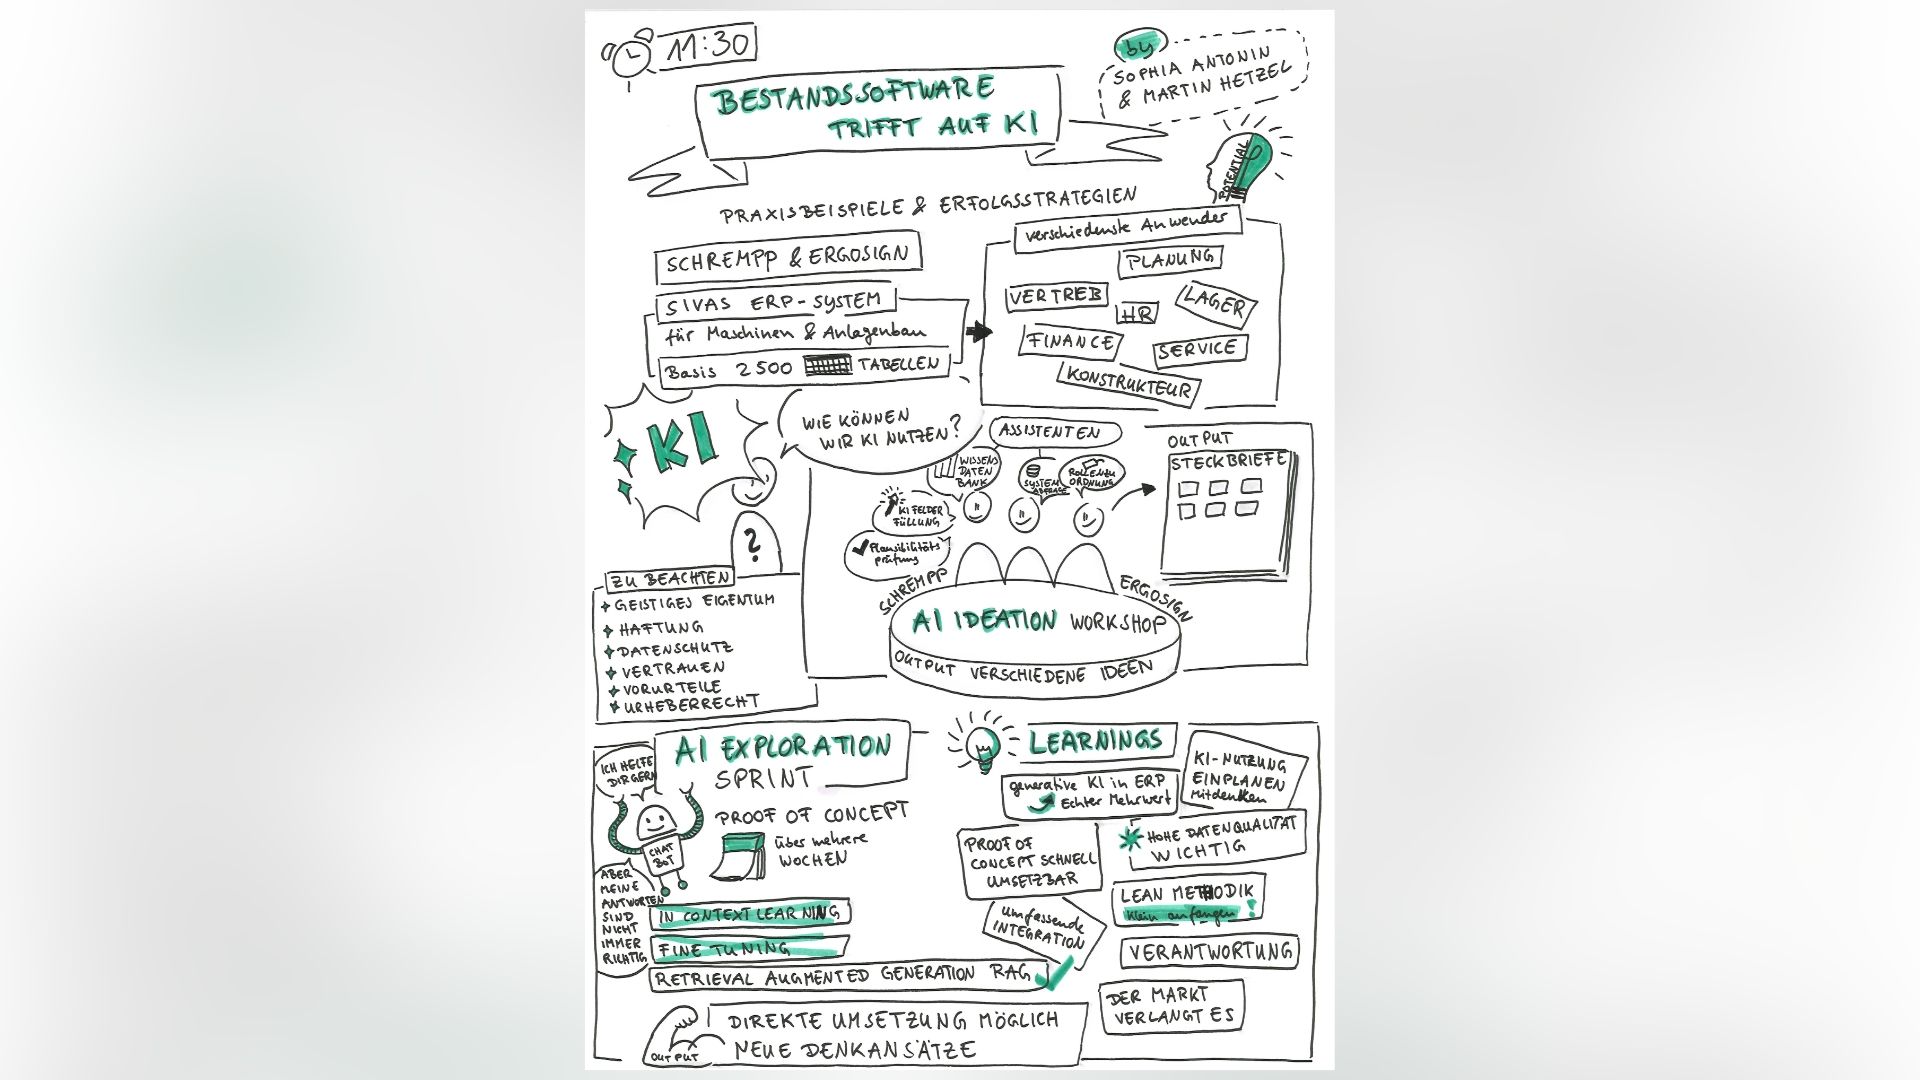 11:30
by
SOPHIA ANTONIN
& MARTIN HETZEL
BESTANDSSOFTWARE
TRIFFT AUF KI
POTENTIAL
PRAXISBEISPIELE & ERFOLGSSTRATEGIEN
SCHREMPP & ERGOSIGN
SIVAS ERP-SYSTEM
für Maschinen & Anlagenbau
Basis 2500 TABELLEN
verschiedenste Anwender
PLANUNG
VERTRIEB
HR
LAGER
FINANCE
SERVICE
KONSTRUKTEUR
KI
WIE KÖNNEN
WIR KI NUTZEN?
?
ZU BEACHTEN
GEISTIGES EIGENTUM
HAFTUNG
DATENSCHUTZ
VERTRAUEN
VORURTEILE
URHEBERRECHT
ASSISTENTEN
WISSENS
DATEN
BANK
SYSTEM
ABFRAGE
ROLLENZU
ORDNUNG
KI FELDER
FÜLLUNG
Plausibilitäts
prüfung
OUTPUT
STECKBRIEFE
SCHREMPP
ERGOSIGN
AI IDEATION WORKSHOP
OUTPUT VERSCHIEDENE IDEEN
AI EXPLORATION
SPRINT
ICH HELFE
DIR GERN
PROOF OF CONCEPT
über mehrere
WOCHEN
CHAT
BOT
ABER
MEINE
ANTWORTEN
SIND
NICHT
IMMER
RICHTIG
IN CONTEXT LEARNING
FINE TUNING
RETRIEVAL AUGMENTED GENERATION RAG
OUTPUT
DIREKTE UMSETZUNG MÖGLICH
NEUE DENKANSÄTZE
LEARNINGS
generative KI in ERP
Echter Mehrwert
KI-NUTZUNG
EINPLANEN
Mitdenken
PROOF OF
CONCEPT SCHNELL
UMSETZBAR
HOHE DATENQUALITÄT
WICHTIG
LEAN METHODIK
klein anfangen!
Umfassende
INTEGRATION
VERANTWORTUNG
DER MARKT
VERLANGT ES